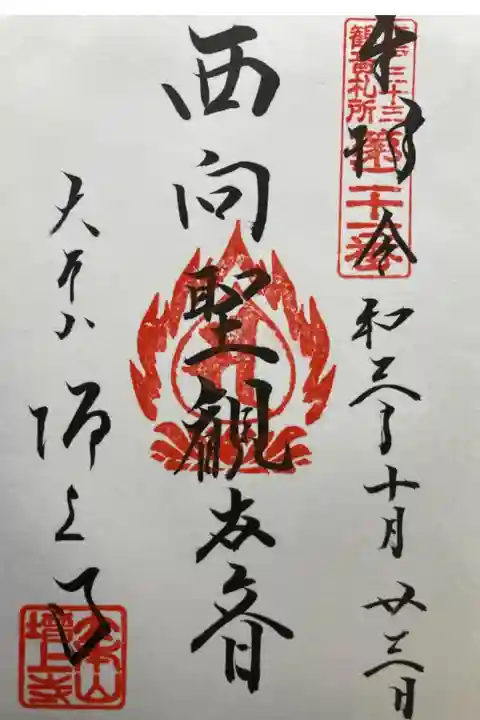 奉拝 令和三年十月廿三日
東京三十三
観音札所
第二十一番
西向聖観世音
大本山 増上寺
大本山
増上寺